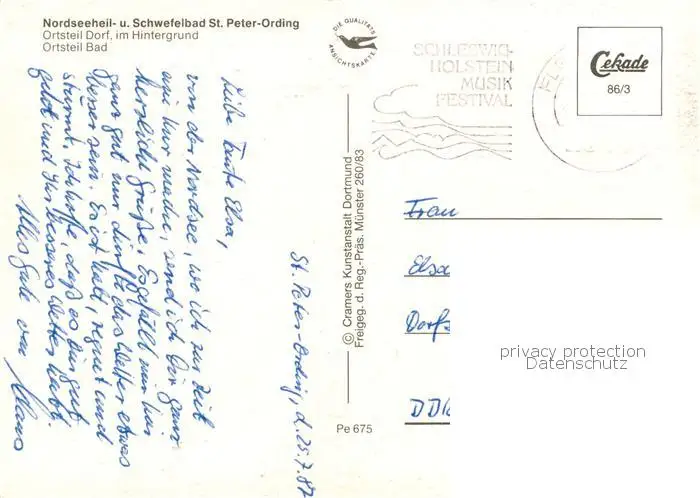 Nordseeheil- u. Schwefelbad St. Peter-Ording
Ortsteil Dorf, im Hintergrund
Ortsteil Bad
DIE QUALITÄTS
ANSICHTSKARTE
SCHLESWIG-
HOLSTEIN
MUSIK
FESTIVAL
FL
Cekade
86/3
St. Peter-Ording, d. 25.7.87
Liebe Tante Elsa,
von der Nordsee, wo ich zur Zeit
eine Kur mache, send ich Dir ganz
herzliche Grüße. Es gefällt mir hier
ganz gut nur dürfte das Wetter etwas
besser sein. Es ist kalt, regnet und
stürmt. Ich hoffe, daß es Dir gut
geht und Ihr besseres Wetter habt.
Alles Gute von
Klaus
© Cramers Kunstanstalt Dortmund
Freigeg. d. Reg.-Präs. Münster 260/83
Pe 675
Frau
Elsa
Dorfs
DDR
privacy protection
Datenschutz